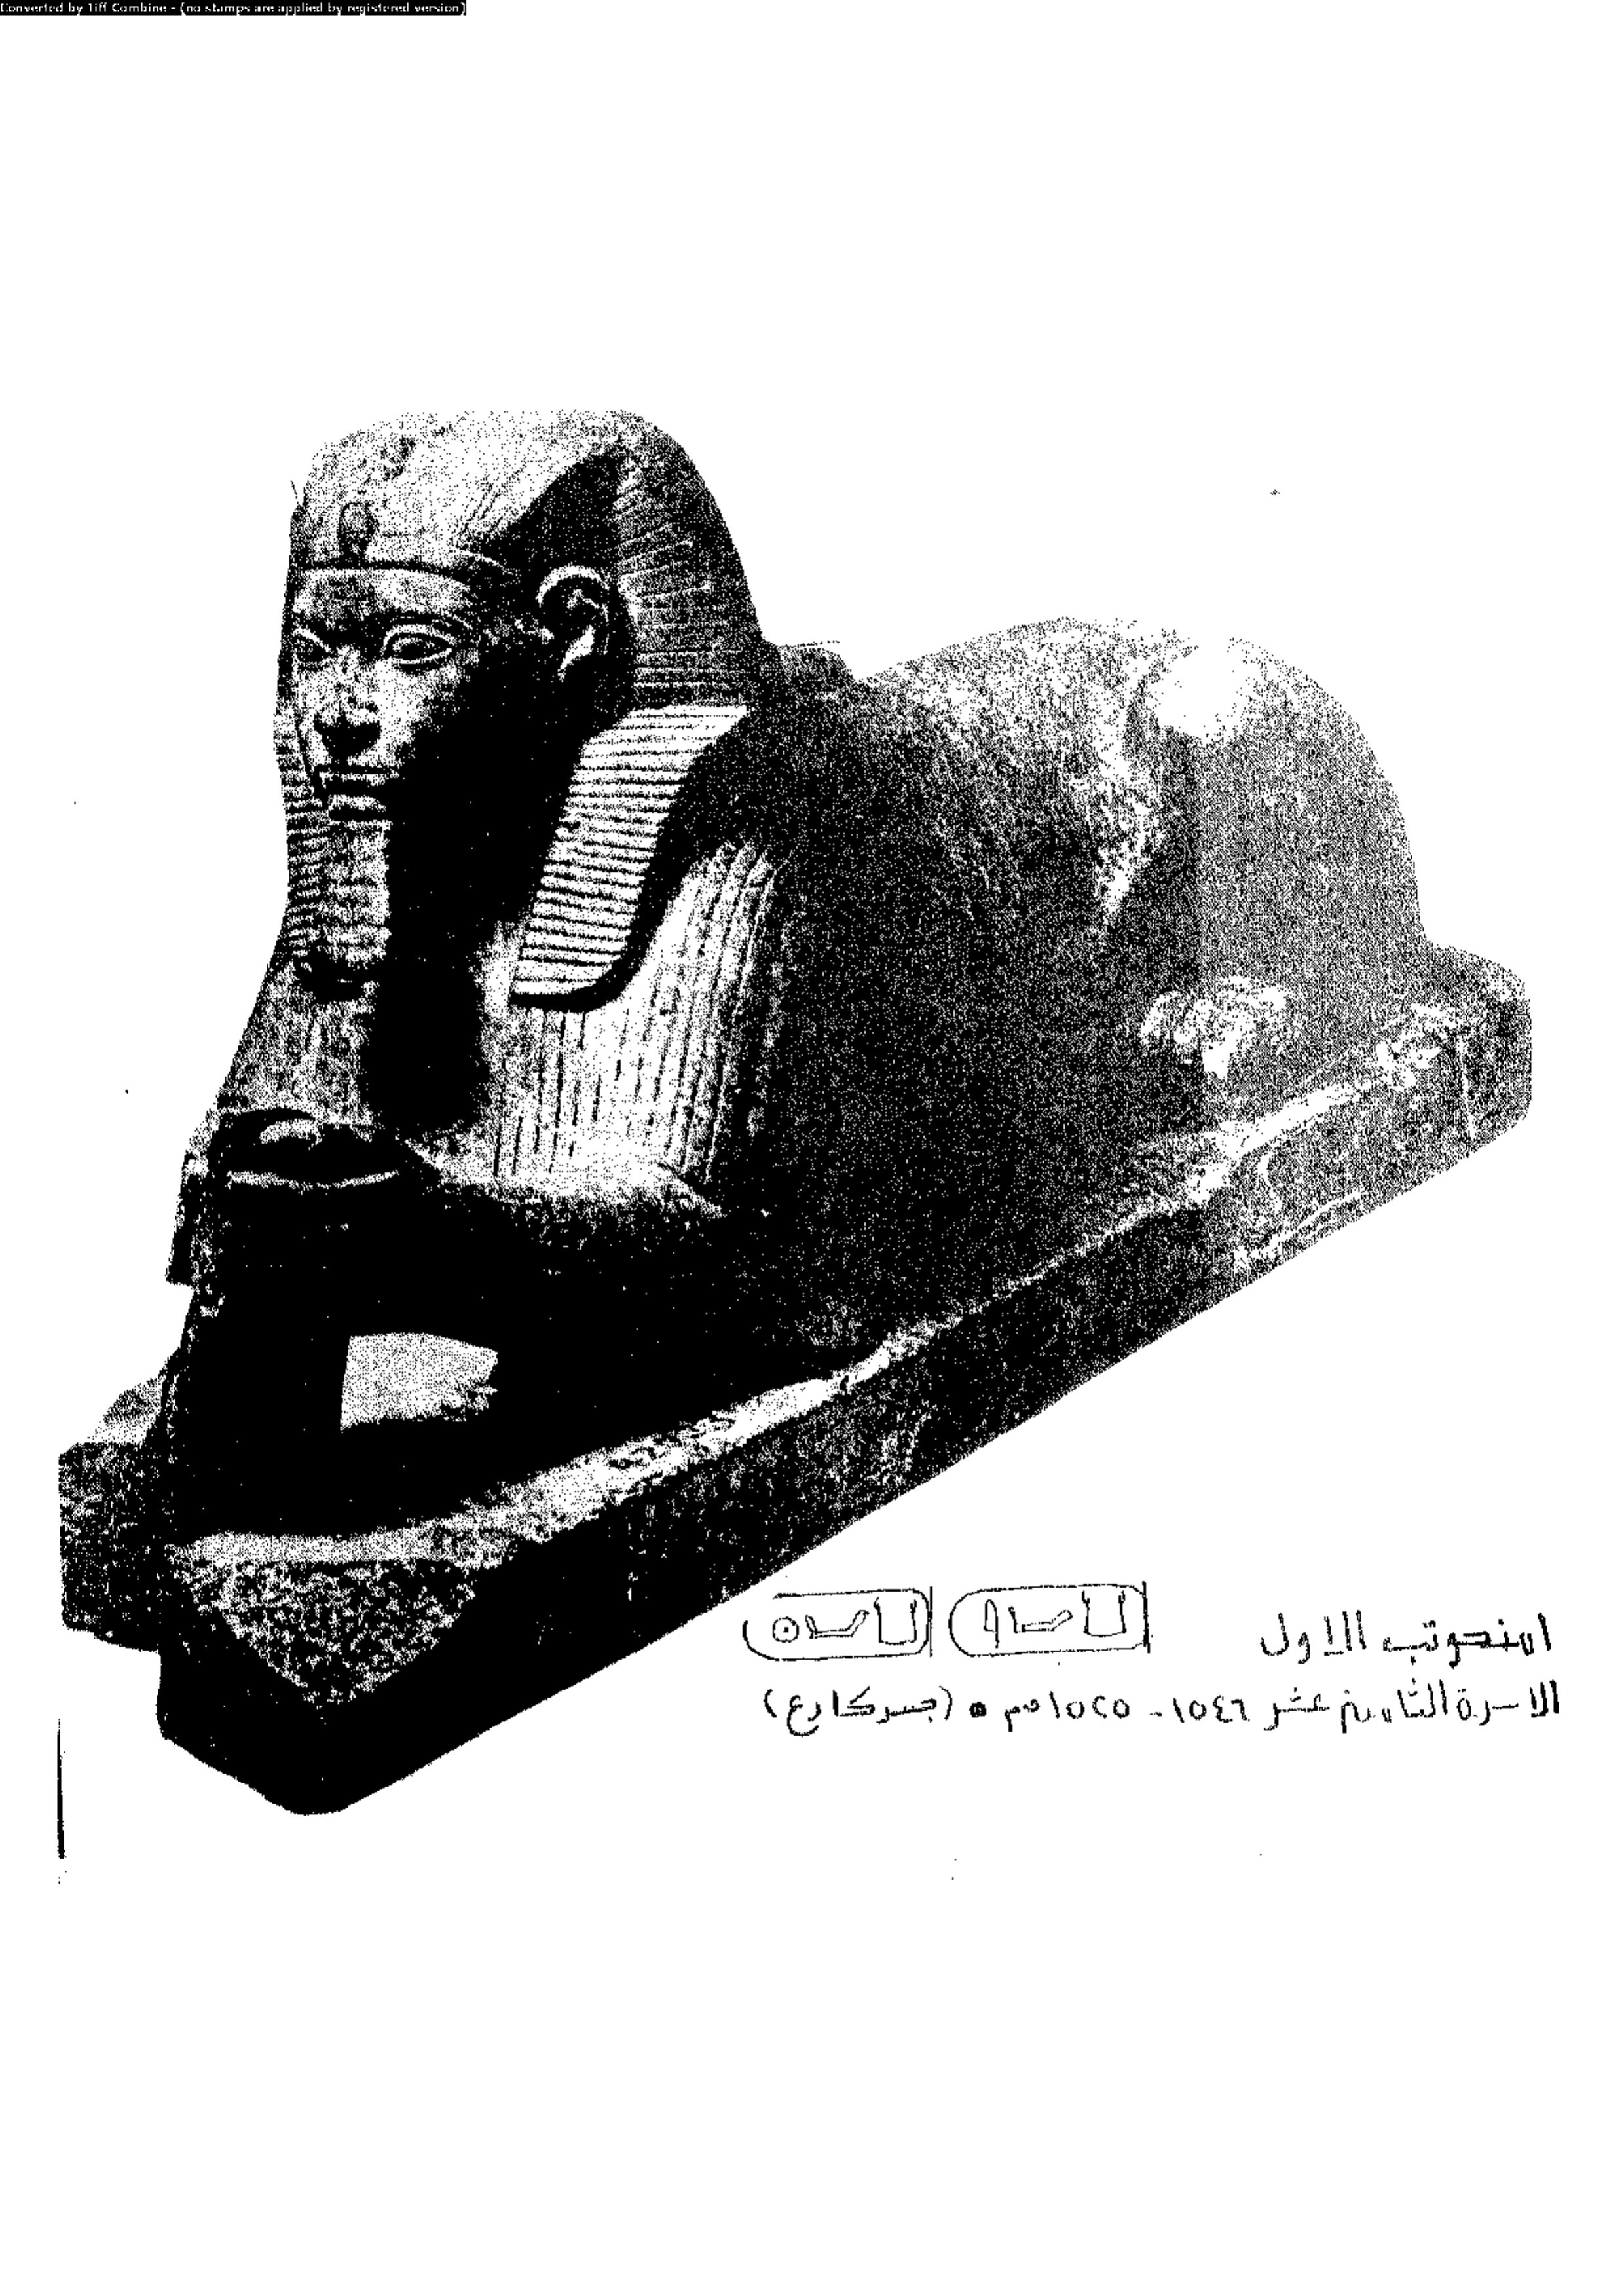 Converted by Tiff Combine - (no stamps are applied by registered version)
امنحوتب الاول
الاسرة الثامنة عشر ١٥٤٦ - ١٥٢٥ ق م • (جسر كا رع)